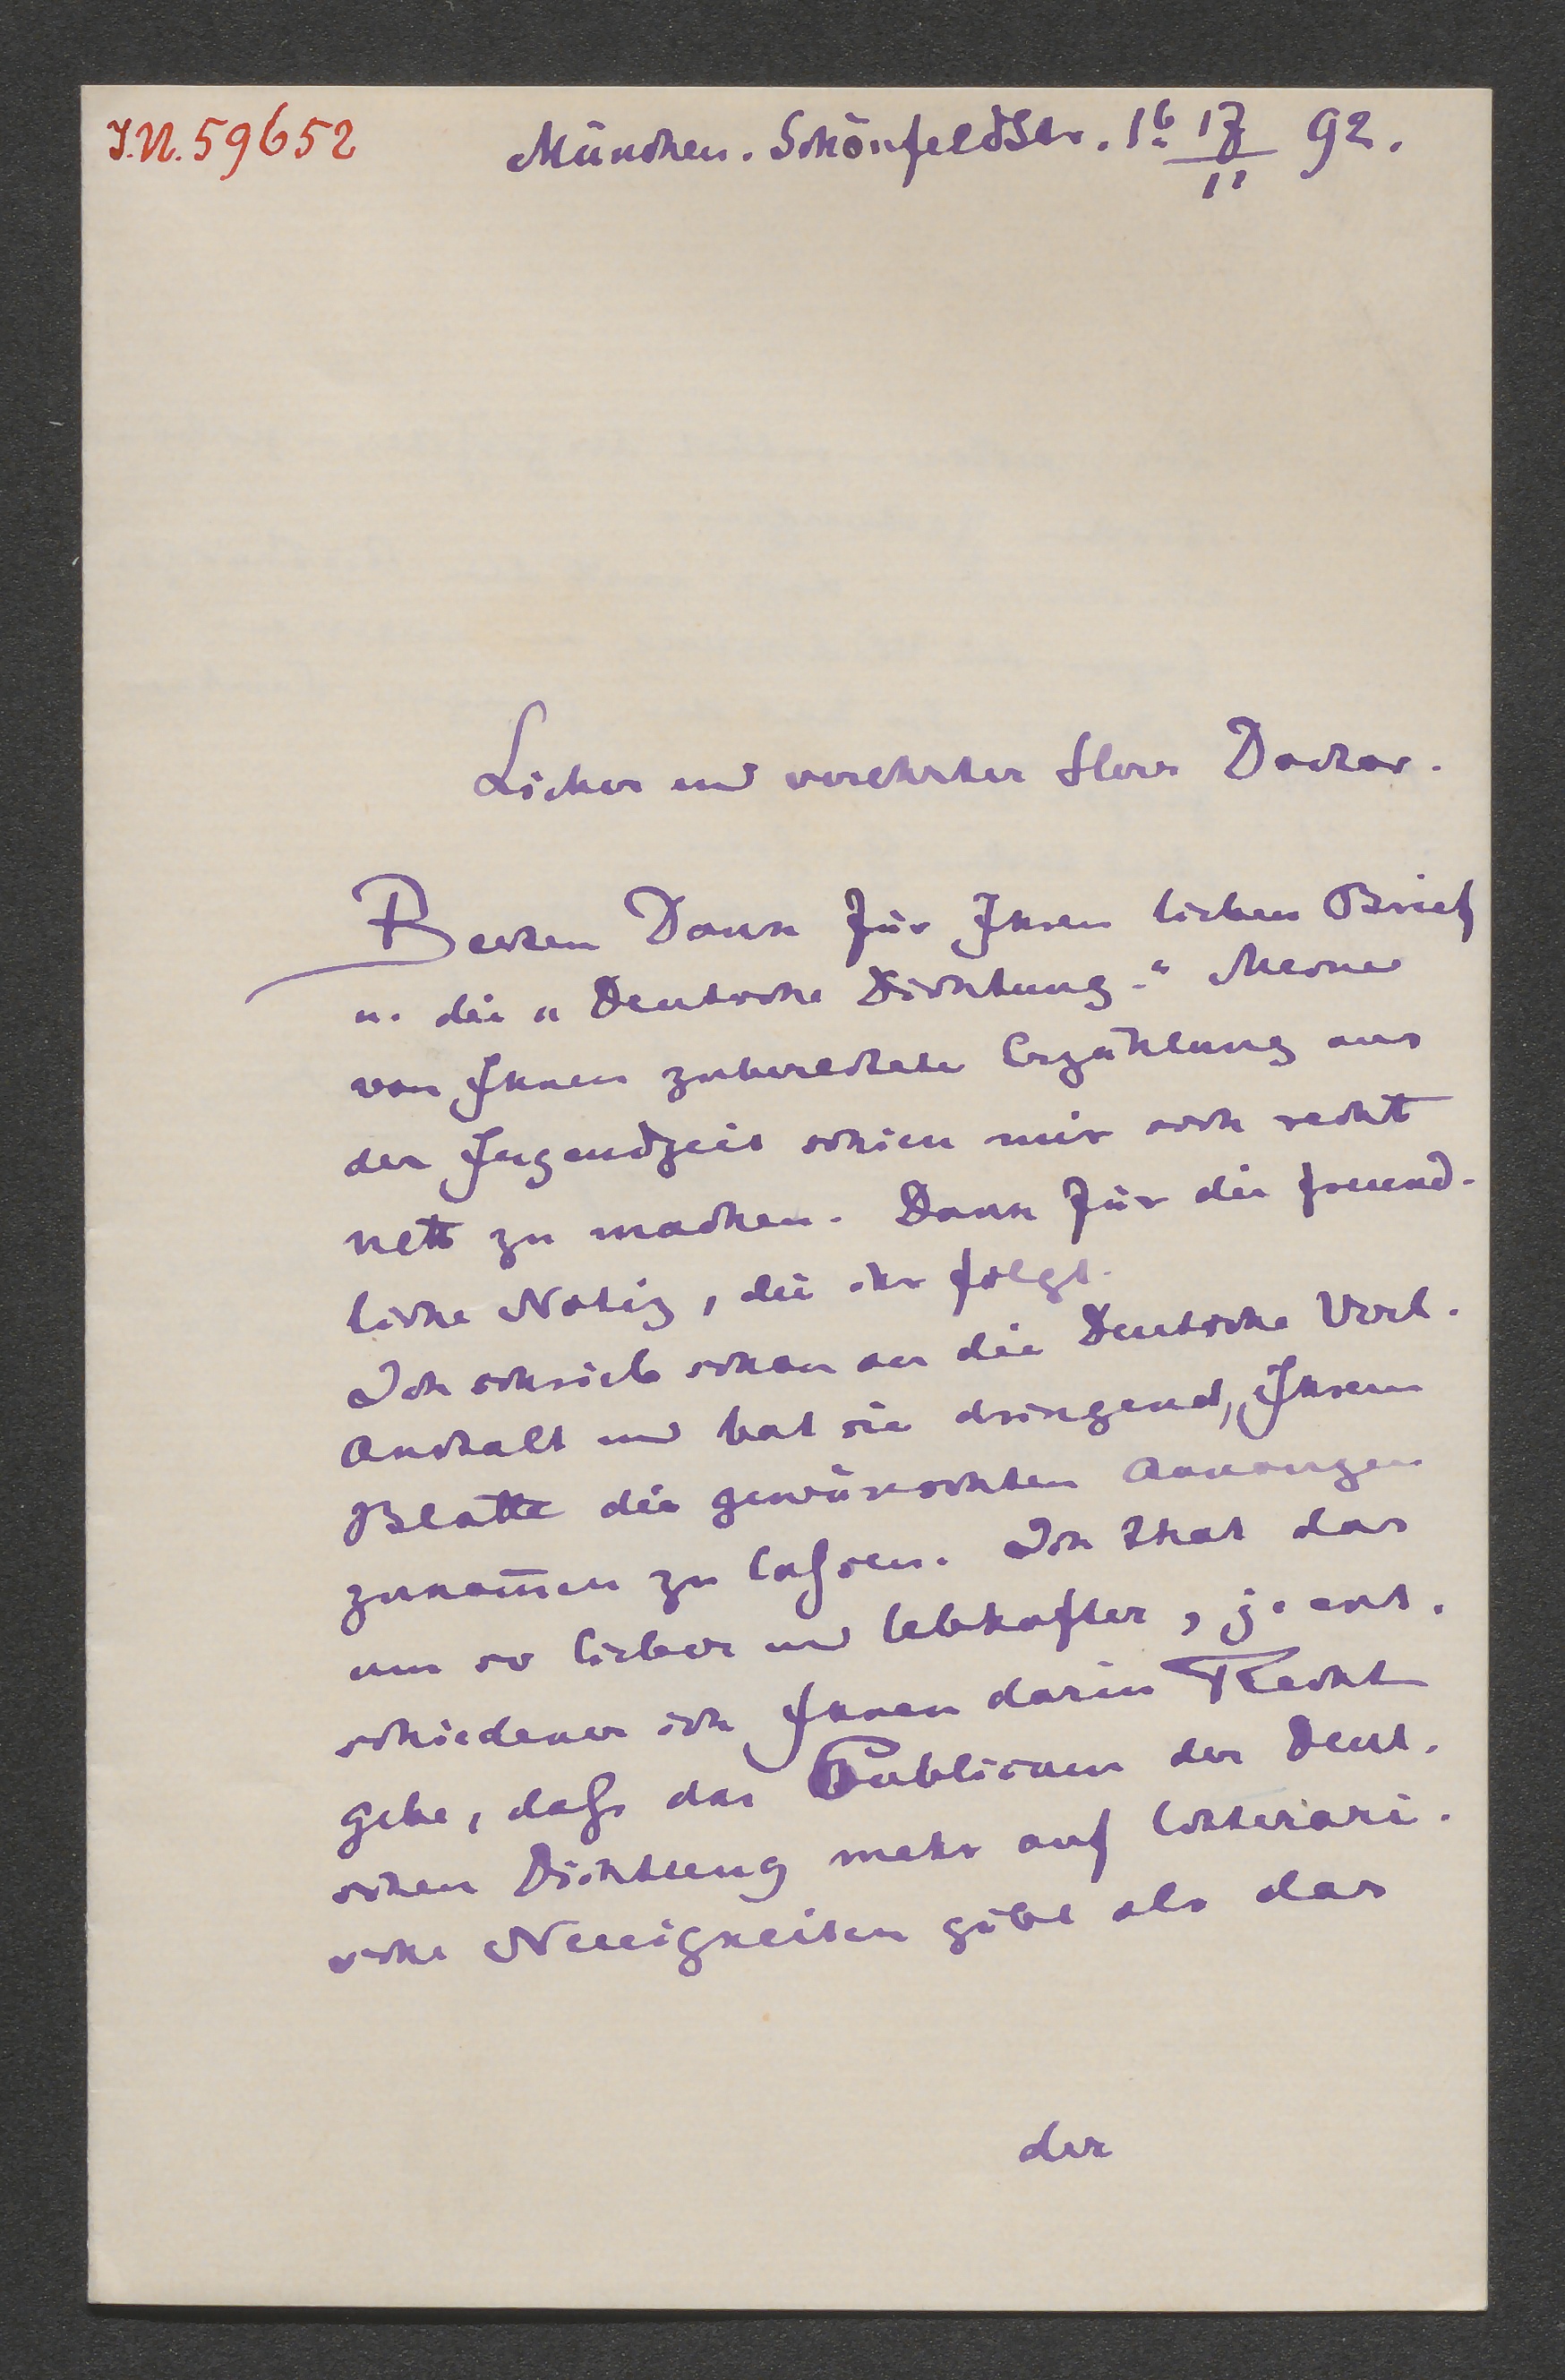 I.N. 59652
München. Schönfeldstr. 1b 17/11 92.
Lieber und verehrter Herr Doctor.
Besten Dank für Ihren lieben Brief
u. die "Deutsche Dichtung." Meine
von Ihnen zubereitete Erzählung aus
der Jugendzeit schien mir sich recht
nett zu machen. Dank für die freund-
liche Notiz, die ihr folgt.
Ich schrieb schon an die Deutsche Verl.
Anstalt und bat sie dringend, Ihrem
Blatte die gewünschten Annongen
zukom̄en zu laſsen. Ich that das
um so lieber und lebhafter, je ent-
schiedener ich Ihnen darin Recht
gebe, daſs das Publicum der Deut-
schen Dichtung mehr auf litterari-
sche Neuigkeiten gibt als das
der